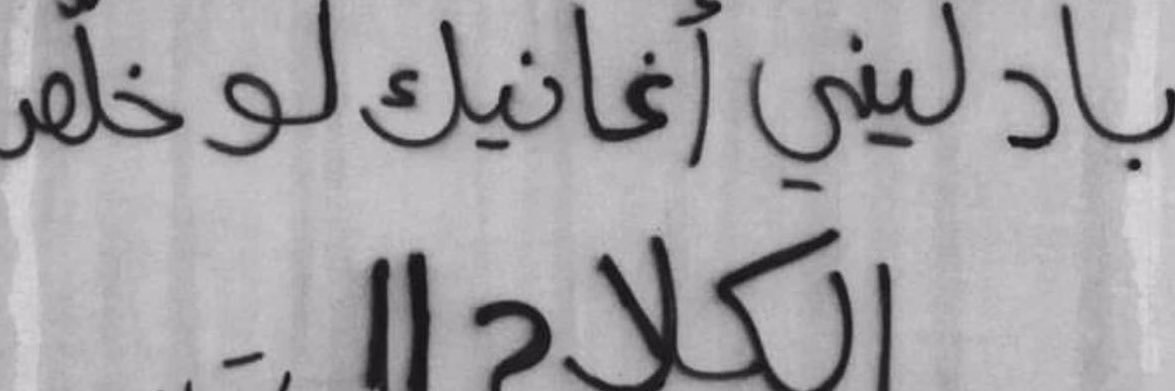 بادليني أغانيك لو خلّص
الكلام !!